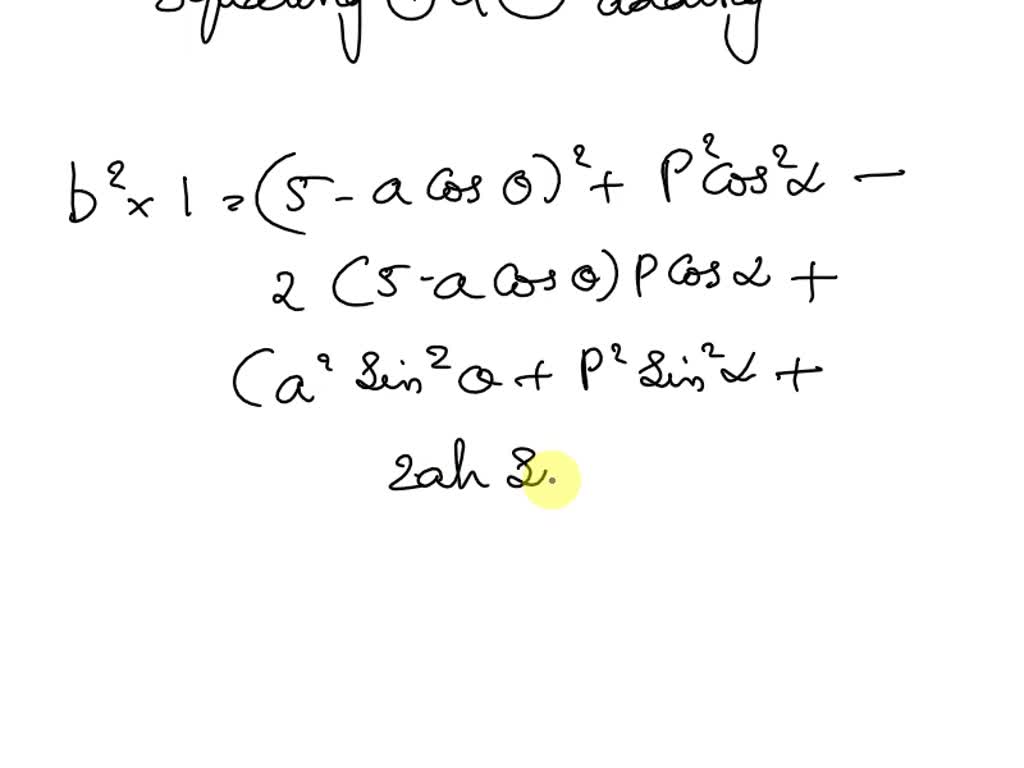 Squaring ① & ② adding
b² × 1 = (5 - a cos θ)² + P² cos² α -
2 (5 - a cos θ) P cos α +
(a² sin² θ + P² sin² α +
2ah S